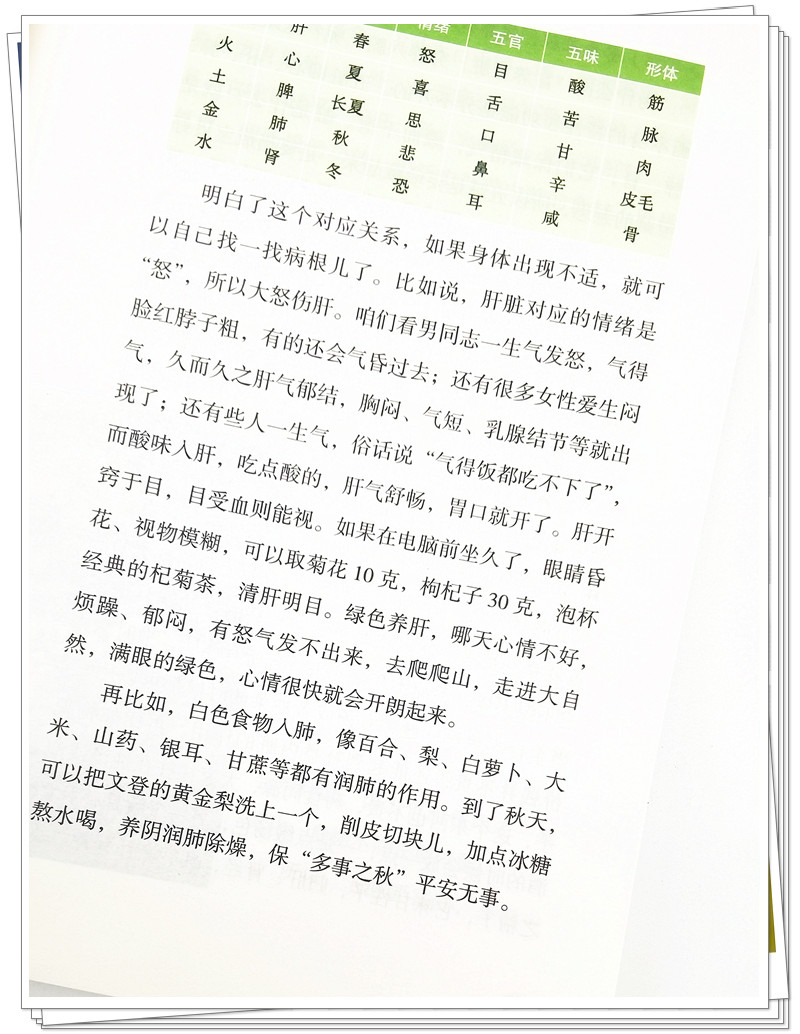 情绪 五官 五味 形体
肝 春 怒 目 酸 筋
火 心 夏 喜 舌 苦 脉
土 脾 长夏 思 口 甘 肉
金 肺 秋 悲 鼻 辛 皮毛
水 肾 冬 恐 耳 咸 骨
明白了这个对应关系，如果身体出现不适，就可
以自己找一找病根儿了。比如说，肝脏对应的情绪是
“怒”，所以大怒伤肝。咱们看男同志一生气发怒，气得
脸红脖子粗，有的还会气昏过去；还有很多女性爱生闷
气，久而久之肝气郁结，胸闷、气短、乳腺结节等就出
现了；还有些人一生气，俗话说“气得饭都吃不下了”，
而酸味入肝，吃点酸的，肝气舒畅，胃口就开了。肝开
窍于目，目受血则能视。如果在电脑前坐久了，眼睛昏
花、视物模糊，可以取菊花 10 克，枸杞子 30 克，泡杯
经典的杞菊茶，清肝明目。绿色养肝，哪天心情不好，
烦躁、郁闷，有怒气发不出来，去爬爬山，走进大自
然，满眼的绿色，心情很快就会开朗起来。
再比如，白色食物入肺，像百合、梨、白萝卜、大
米、山药、银耳、甘蔗等都有润肺的作用。到了秋天，
可以把文登的黄金梨洗上一个，削皮切块儿，加点冰糖
熬水喝，养阴润肺除燥，保“多事之秋”平安无事。